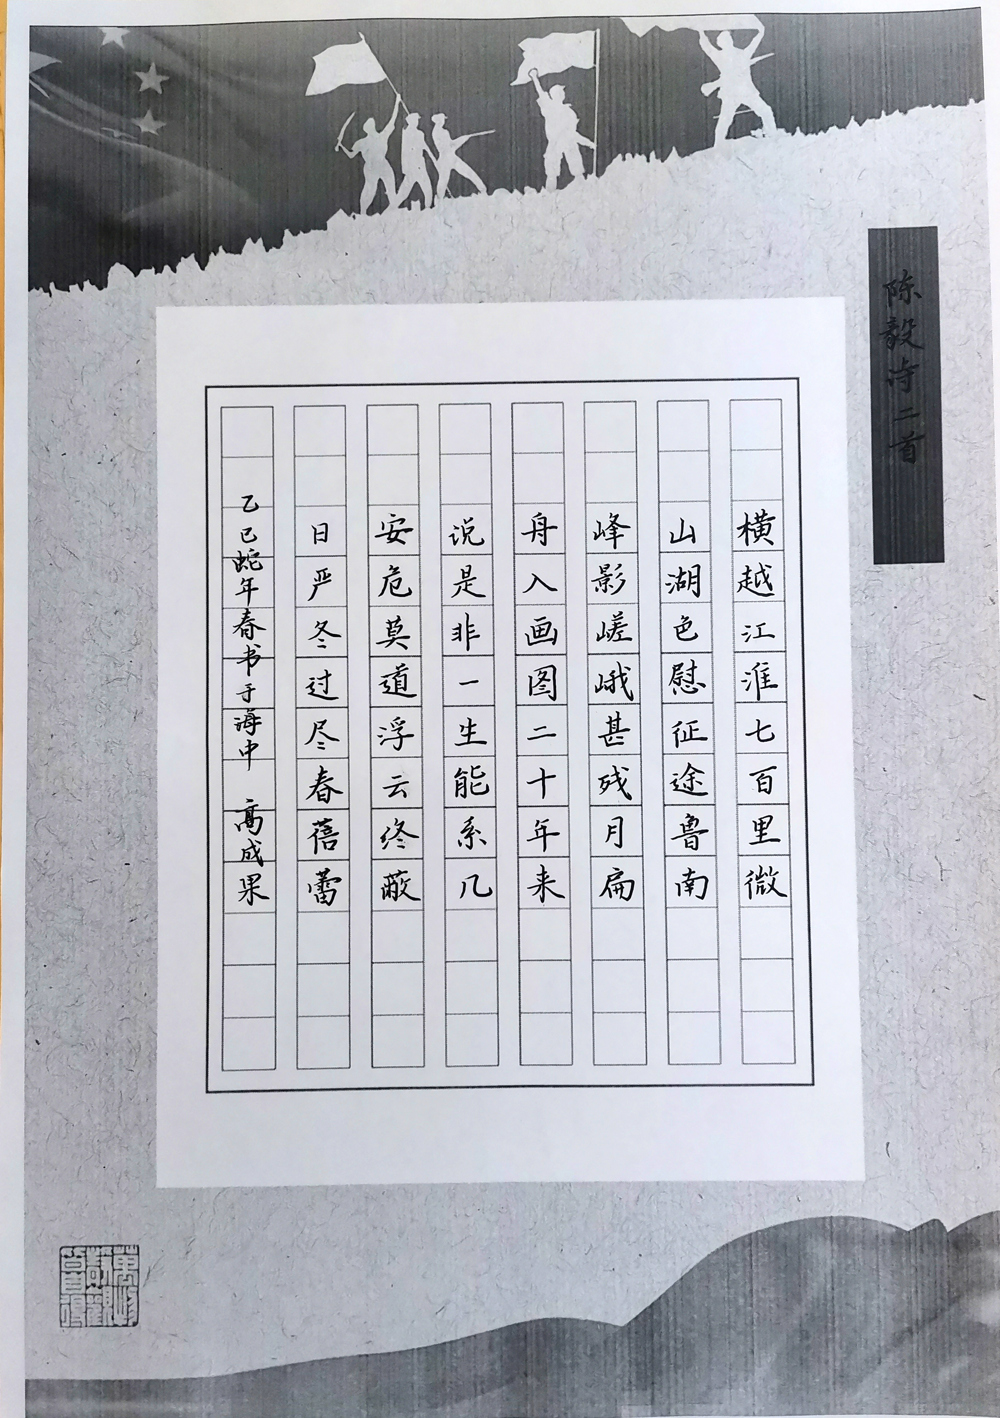 陈毅诗二首
横越江淮七百里微
山湖色慰征途鲁南
峰影嵯峨甚残月扁
舟入画图二十年来
说是非一生能系几
安危莫道浮云终蔽
日严冬过尽春蓓蕾
乙巳蛇年春书于海中 高成果